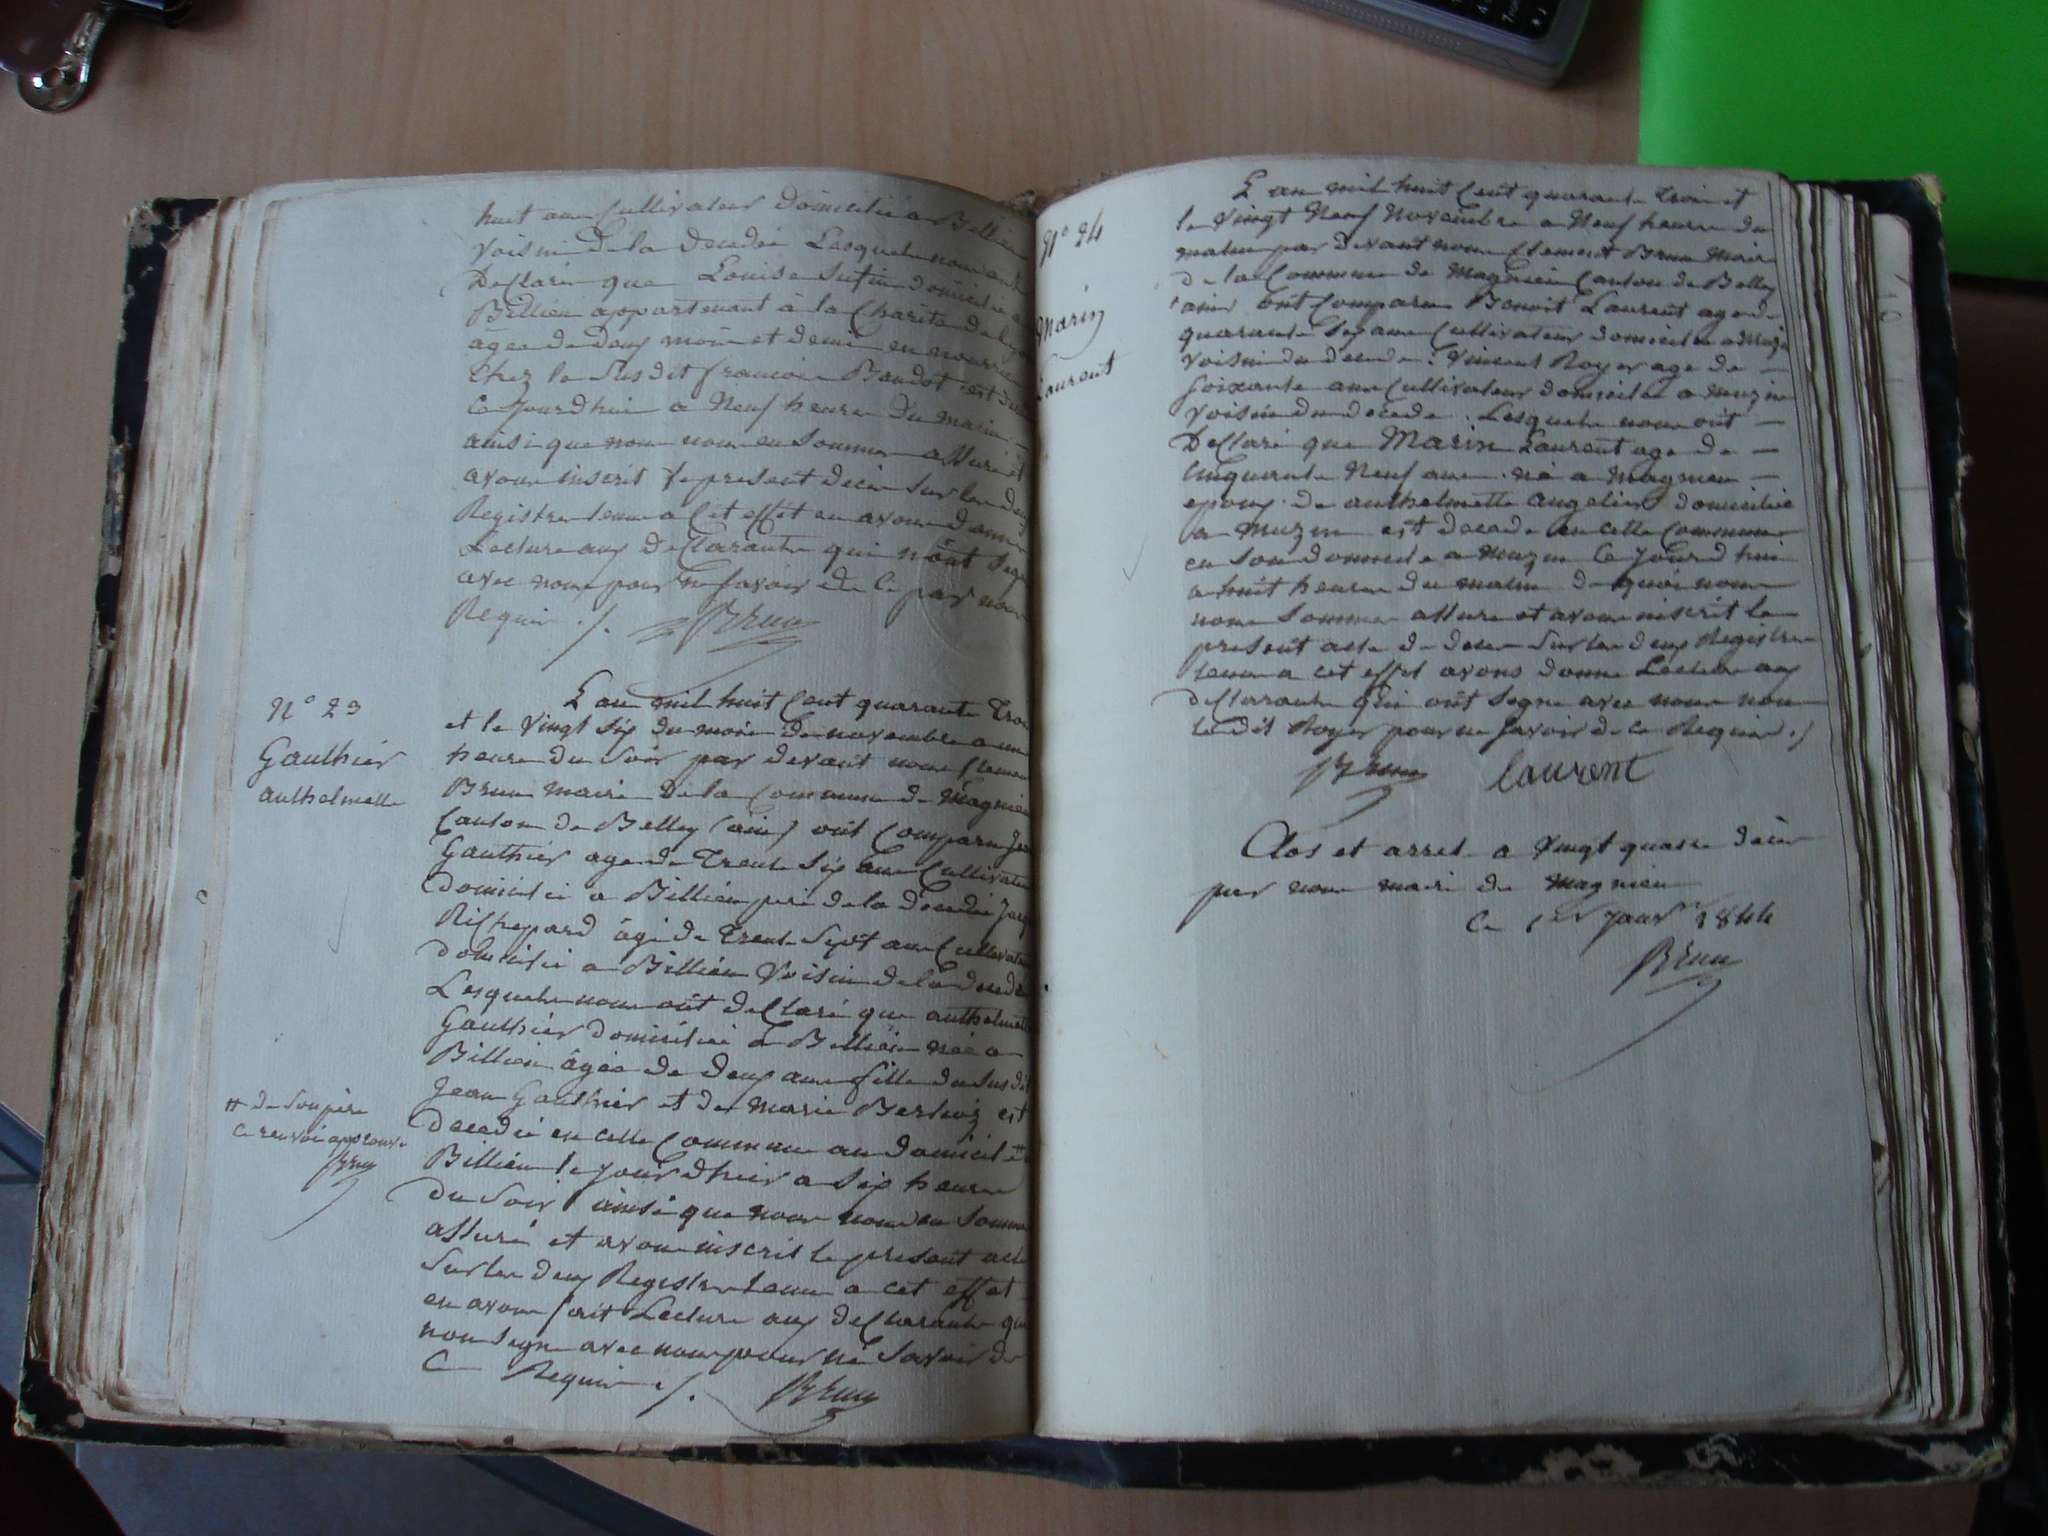 huit ans Cultivateur domicilié a Billieu
Voisin De la décédée Lesquels nous ont
Declaré que Louise Sutin domicilié a
Billieu appartenant à la Charité de Lyon
âgée de deux mois et demi en nourrice
Chez le Susdit francois Baudot est
Ce jourdhui a Neuf heures du matin
ainsi que nous nous en Sommes assuré et
avons inscrit le present décès Sur les deux
Registres tenus a Cet effet en avons donné
Lecture aux Declarants qui n'ont Signé
avec nous pour ne Savoir de Ce par nous
Requis ./. Brun
N° 23
Gauthier
anthelmette
L'an mil huit Cent quarante Trois
et le Vingt Six du mois de novembre a une
heure du Soir par devant nous Clement
Brun maire De la Commune de Magnieu
Canton de Belley (ain) ont Comparu Jean
Gauthier age de Trente Six ans Cultivateur
domicilié a Billieu pere de la décédée
Richepard âgé de trente Sept ans Cultivateur
domicilié a Billieu Voisin de la décédée
Lesquels nous ont declaré que anthelmette
Gauthier domiciliée a Billieu née a
Billieu âgée de deux ans fille du Susdit
Jean Gauthier et de Marie est
# de Son père
Ce renvoi approuvé
Brun
Decedée en cette Commune au domicile #
Billieu le jour d'hier a Six heures
du Soir ainsi que nous nous en Sommes
assuré et avons inscrit le présent acte
Sur les deux Registres tenus a cet effet
en avons fait Lecture aux declarants qui
non Signe avec nous pour ne Savoir de
Ce Requis ./. Brun
N° 24
Marin
Laurent
L'an mil huit Cent quarante Trois et
le Vingt Neuf Novembre a Neuf heures du
matin par Devant nous Clement Brun Maire
de la Commune de Magnieu Canton de Belley
ain ont Comparu Benoit Laurent age de
quarante Six ans Cultivateur domicilié a Muzin
Voisin du décédé : Vincent Royer age de
Soixante ans Cultivateur domicilié a Muzin
Voisin du décédé . Lesquels nous ont
Declaré que Marin Laurent age de
Cinquante Neuf ans né a Magnieu
epoux de anthelmette Angelier domicilié
a Muzin est decedé en cette Commune
en Son domicile a Muzin Ce Jourd'hui
a huit heures du matin de quoi nous
nous Sommes assuré et avons inscrit le
present acte de deces Sur les deux Registres
tenus a cet effet avons donné Lecture aux
declarants qui ont Signe avec nous non
Le dit Royer pour ne Savoir de Ce Requis ./
Brun Laurent
Clos et arreté a Vingt quatre décès
par nous maire de Magnieu
Ce 1er Janvr 1844
Brun